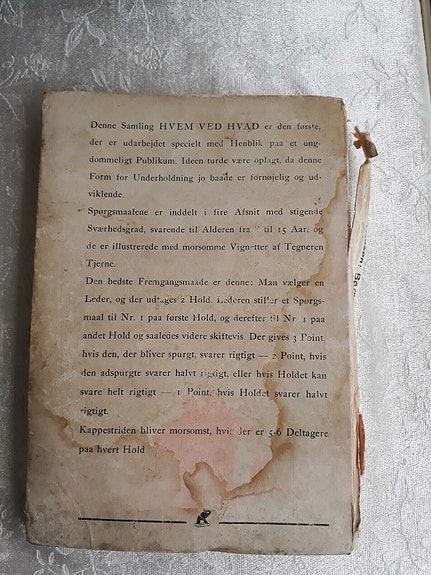 Denne Samling HVEM VED HVAD er den første,
der er udarbejdet specielt med Henblik paa et ung-
dommeligt Publikum. Ideen turde være oplagt, da denne
Form for Underholdning jo baade er fornøjelig og ud-
viklende.
Spørgsmaalene er inddelt i fire Afsnit med stigende
Sværhedsgrad, svarende til Alderen fra til 15 Aar, og
de er illustrerede med morsomme Vignetter af Tegneren
Tjerne.
Den bedste Fremgangsmaade er denne: Man vælger en
Leder, og der udtages 2 Hold. Lederen stiller et Spørgs-
maal til Nr. 1 paa første Hold, og derefter til Nr 1 paa
andet Hold og saaledes videre skiftevis. Der gives 3 Point,
hvis den, der bliver spurgt, svarer rigtigt — 2 Point, hvis
den adspurgte svarer halvt rigtigt, eller hvis Holdet kan
svare helt rigtigt — 1 Point, hvis Holdet svarer halvt
rigtigt.
Kappestriden bliver morsomst, hvis der er 5-6 Deltagere
paa hvert Hold